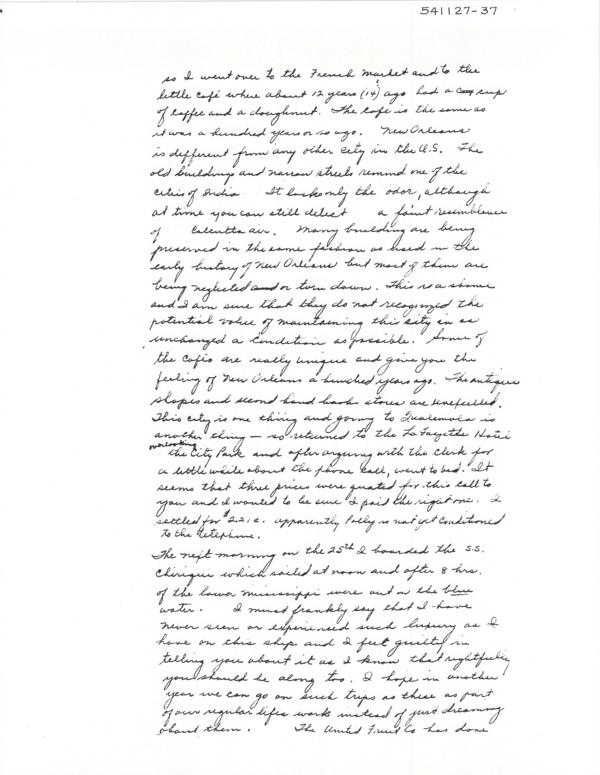 541127-37
so I went over to the French Market and to the
little café where about 12 years (14) ago had a cup
of coffee and a doughnut. The cafe is the same as
it was a hundred years or so ago. New Orleans
is different from any other city in the U.S. The
old buildings and narrow streets remind one of the
cities of India. It lacks only the odor, although
at time you can still detect a faint resemblance
of Calcutta air. Many building are being
preserved in the same fashion as used in the
early history of New Orleans but most of them are
being neglected and or torn down. This is a shame
and I am sure that they do not recognized the
potential value of maintaining this city in as
unchanged a condition as possible. Some of
the cafes are really unique and give you the
feeling of New Orleans a hundred years ago. The antique
shopes and second hand book stores are unexcelled.
This city is one thing and going to Guatemala is
another thing — so returned to the La Fayette Hotel
overlooking
the City Park and after arguing with the clerk for
a little while about the phone call, went to bed. It
seems that three prices were quoted for this call to
you and I wanted to be sure I paid the right one. I
settled for $2.21c. apparently Polly is not yet conditioned
to the telephone.
The next morning on the 25th I boarded the S.S.
Chiriqui which sailed at noon and after 8 hrs.
of the lower Mississippi were out in the blue
water. I must frankly say that I have
never seen or experienced such luxury as I
have on this ship and I feel guilty in
telling you about it as I know that rightfully
you should be along too. I hope in another
year we can go on such trips as these as part
of our regular lifes work instead of just dreaming
about them. The United Fruit Co has done